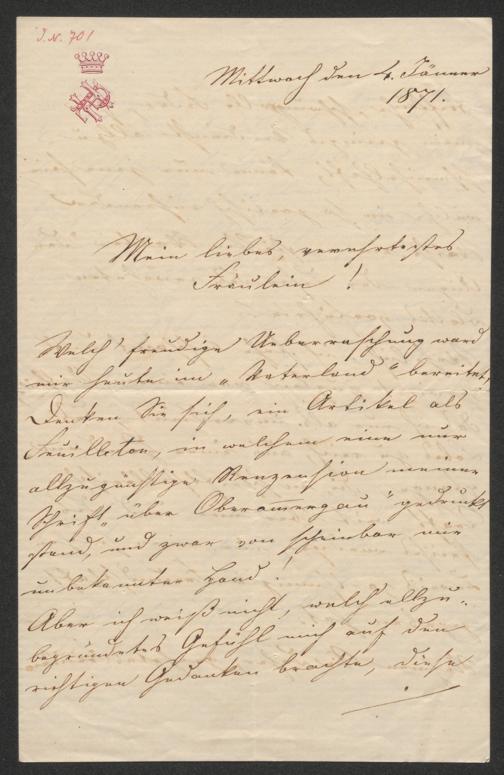 J. N. 701
Mittwoch den 4. Jänner
1871.
Mein liebes, verehrtestes
Fräulein !
Welch' freudige Ueberraschung ward
mir heute im „Vaterland" bereitet,
Denken Sie sich, ein Artikel als
Feuilleton, in welchem eine nur
allzugünstige Renzension meiner
Schrift „über Oberammergau" gedruckt
stand, und zwar von scheinbar mir
unbekannter Hand !
Aber ich weiß nicht, welch allzu-
begründetes Gefühl mich auf den
richtigen Gedanken brachte, diese